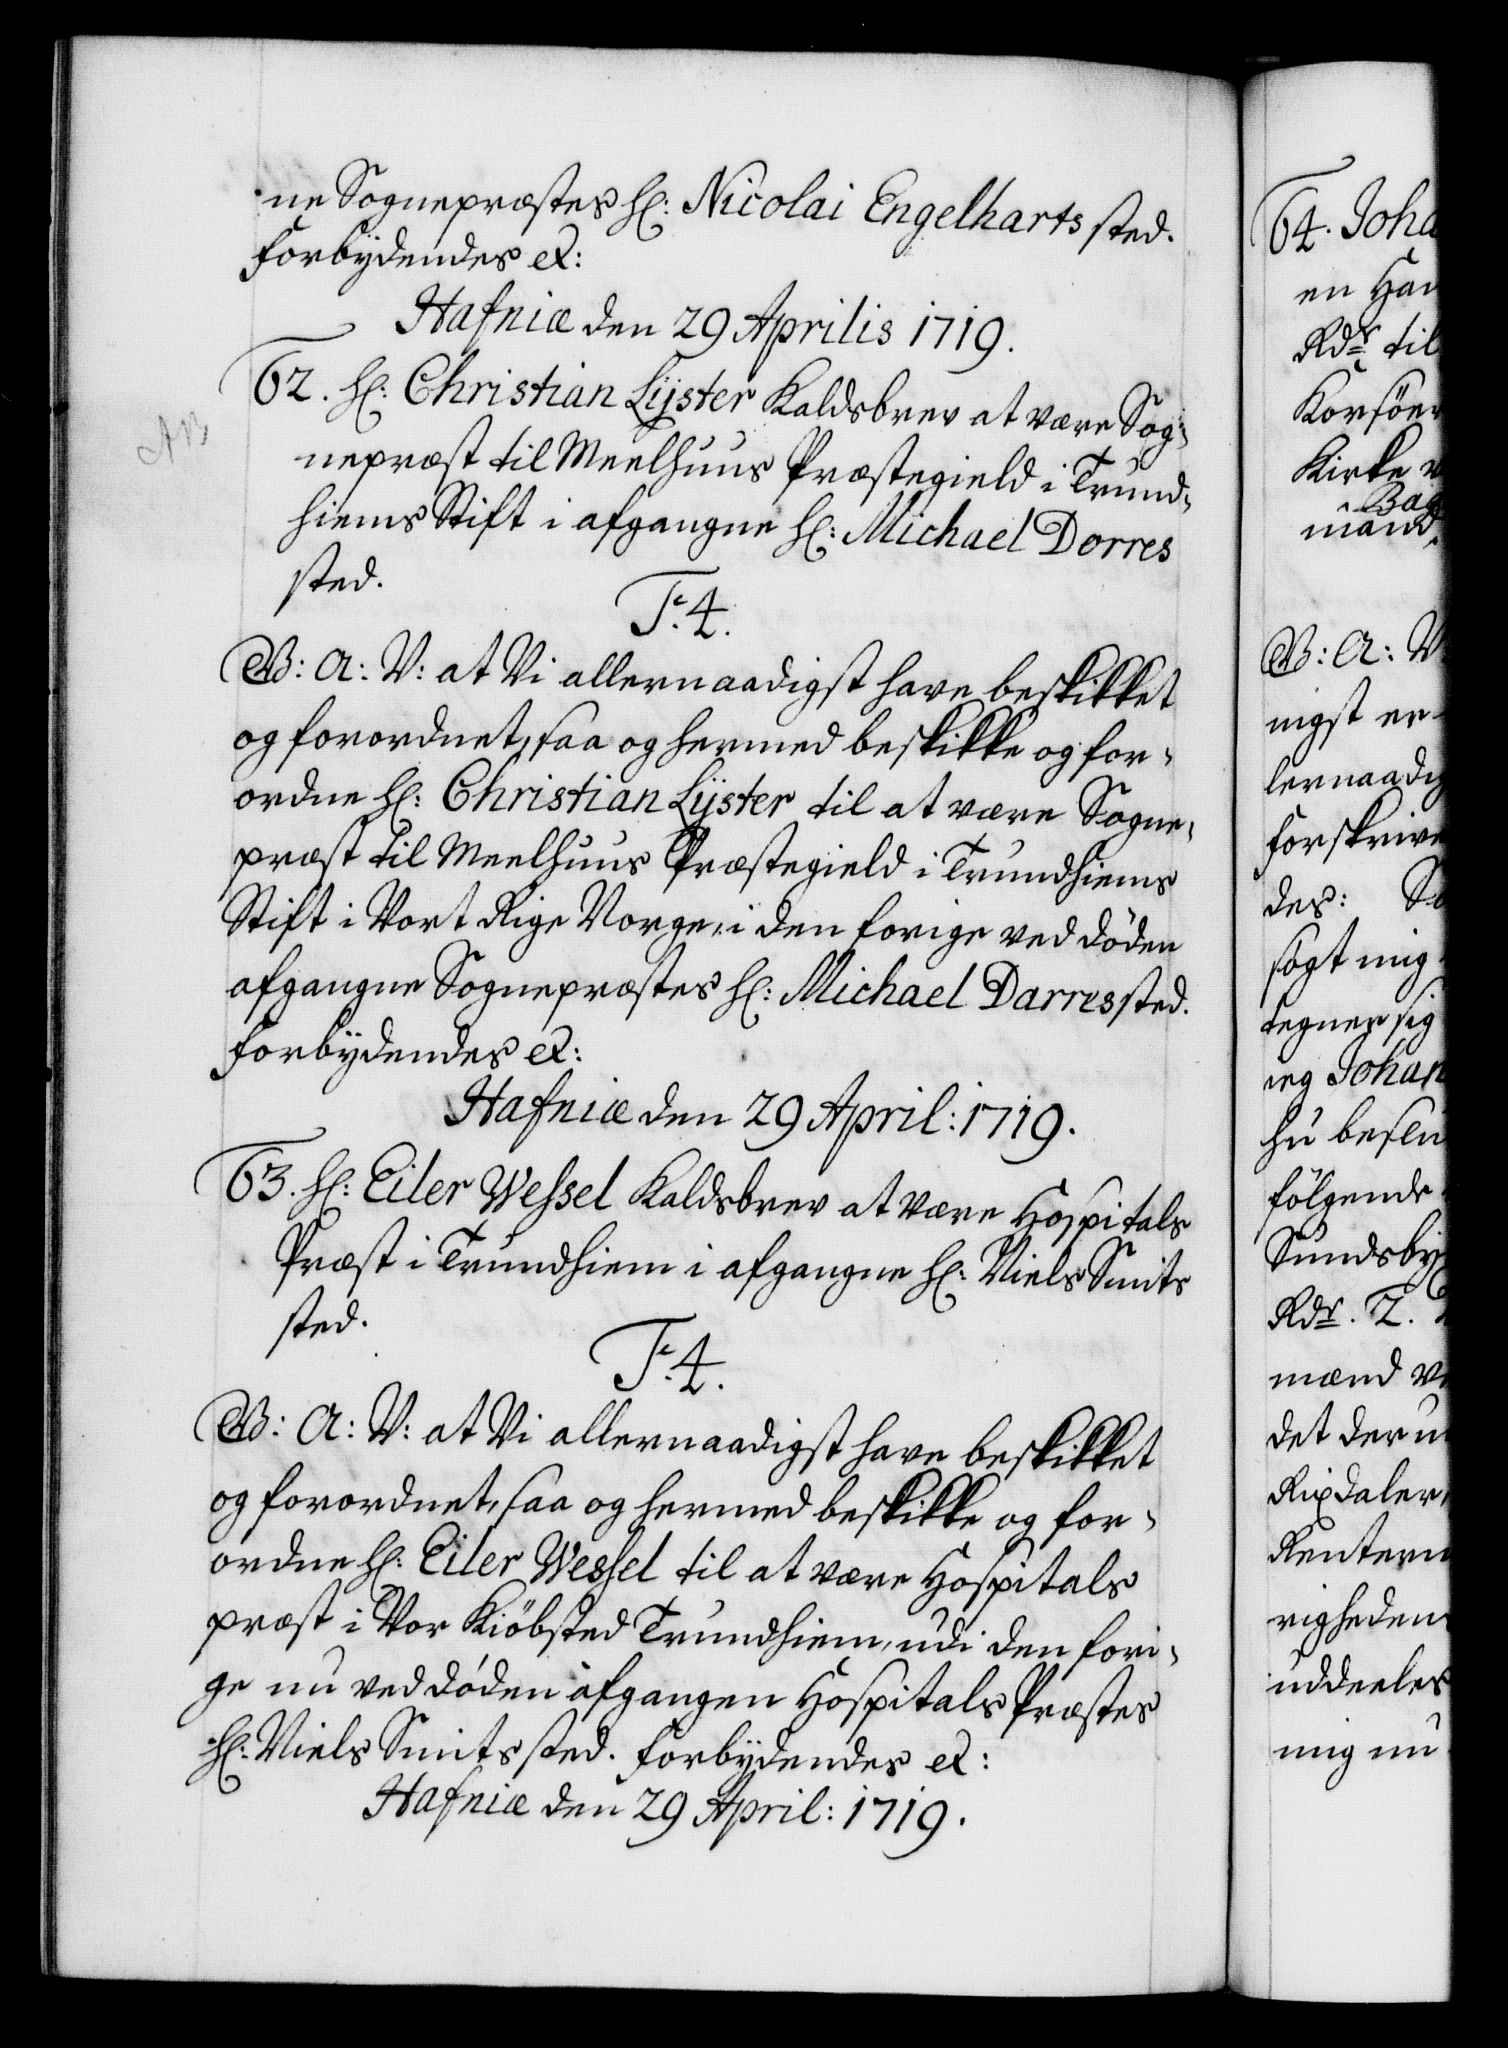 ne Sognepræstes H: Nicolai Engelharts sted.
Forbydendes etc:
Hafniæ den 29 Aprilis 1719.
62. H: Christian Lyster Kaldsbrev at være Sog-
nepræst til Meelhuus Præstegield i Trund-
hiems Stift i afgangne H: Michael Dorres
sted.
F. 4.
G: A: V: at Vi allernaadigst have beskikket
og forordnet, saa og hermed beskikke og for-
ordne H: Christian Lyster til at være Sogne-
præst til Meelhuus Præstegield i Trundhiems
Stift i Vort Rige Norge, i den forige ved döden
afgangne Sognepræstes H: Michael Darres sted.
Forbydendes etc:
Hafniæ den 29 April: 1719.
63. H: Eiler Wessel Kaldsbrev at være Hospitals
Præst i Trundhiem i afgangne H: Niels Smits
sted.
F. 4.
G: A: V: at Vi allernaadigst have beskikket
og forordnet, saa og hermed beskikke og for-
ordne H: Eiler Wessel til at være Hospitals
præst i Vor Kiöbsted Trundhiem, udi den fori-
ge nu ved döden afgangen Hospitals Præstes
H: Niels Smits sted. Forbydendes etc:
Hafniæ den 29 April: 1719.
64. Joha
en Han
Rdr til
Korsöer
Kirke
Bag
mand,
G: A: V
nigst er
lernaadig
forskrive
des:
sögt mig
tegner sig
ieg Johan
hu beslu
fölgende
Sundsby
Rdr. 2.
mænd
det deru
Rixdaler,
Rentern
righeden
uddeeles
mig nu